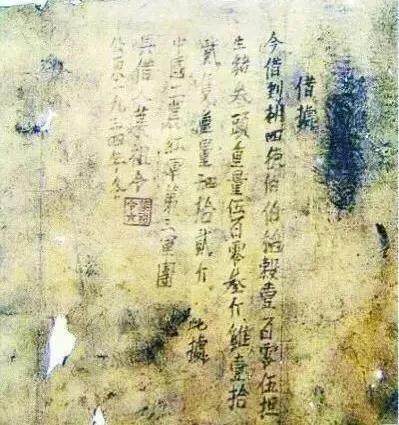 借據
今借到胡四德伯伯稻穀壹百零伍担
生豬叁頭重量伍百零叁斤雞壹拾
貳隻重量肆拾貳斤 此據
中國工農紅軍第三軍團
具借人葉祖令
公元一九三四年冬